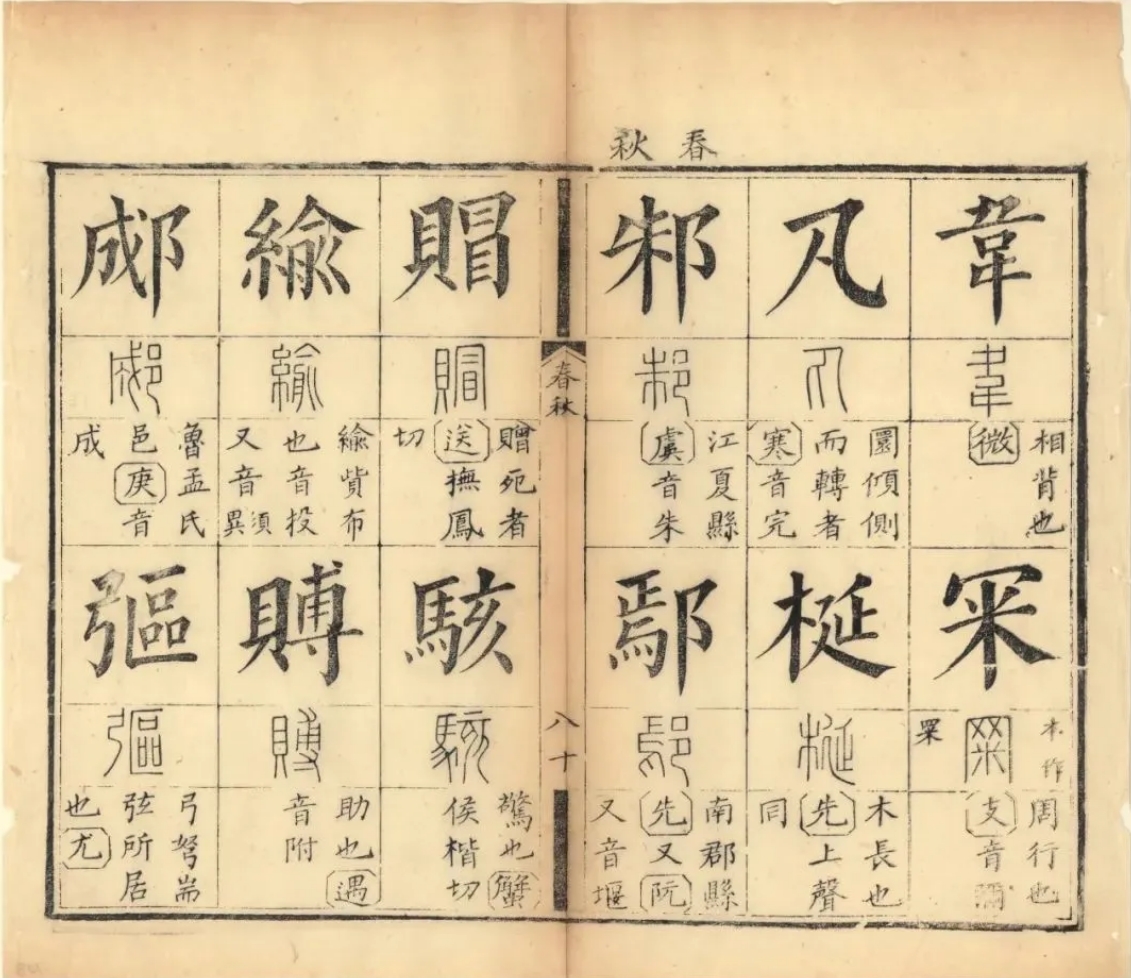 春秋
韋
韋
相背也
微
丸
丸
圜傾側
而轉者
寒音完
邾
邾
江夏縣
虞音朱
冞
本作
周行也
支音彌
梴
梴
木長也
先上聲
同
鄢
鄢
南郡縣
先又阮
又音堰
春秋
八十
賵
賵
贈死者
送撫鳳
切
緰
緰
緰貲布
也音投
又音須異
郕
郕
魯孟氏
邑庚音
成
駭
駭
驚也蟹
侯楷切
賻
賻
助也遇
音附
彄
彄
弓弩耑
弦所居
也尤